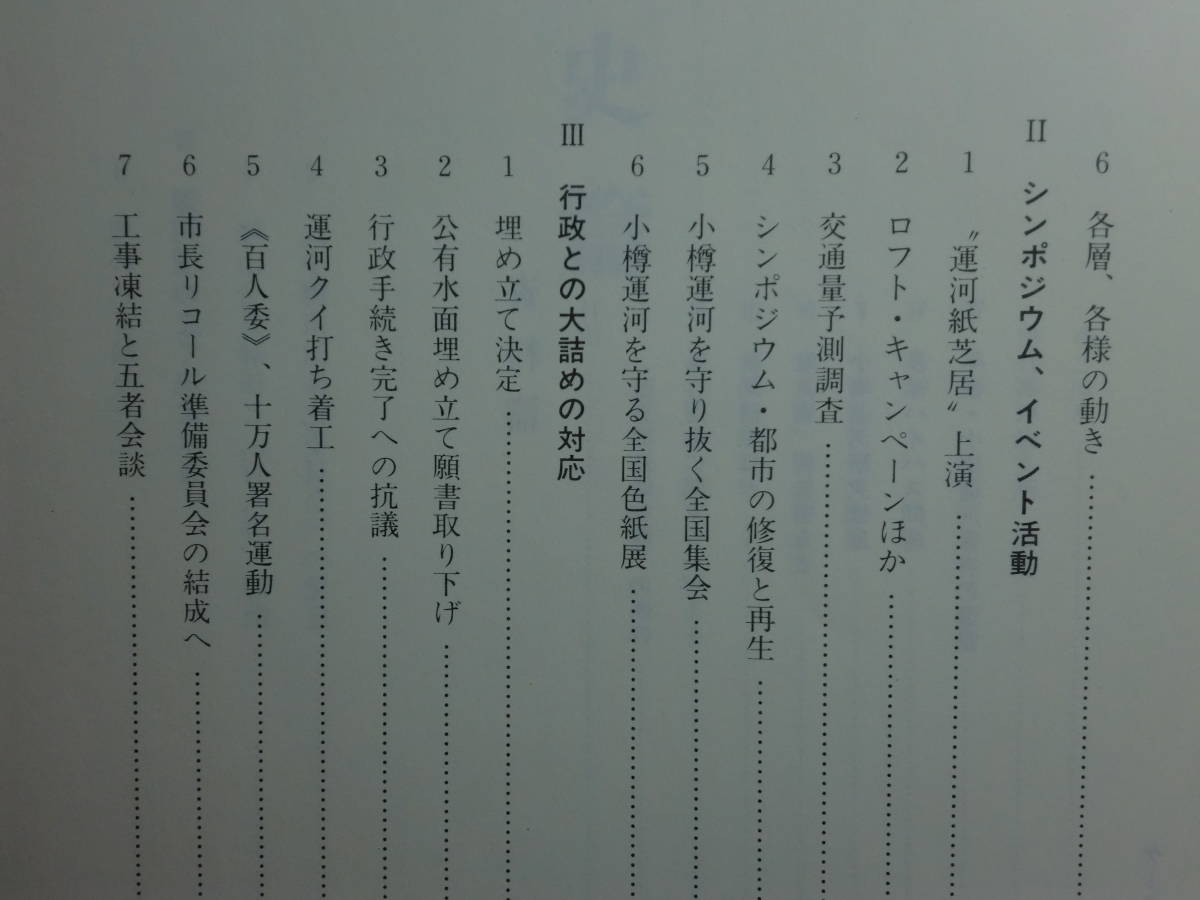 6 各層、各様の動き……………………
II シンポジウム、イベント活動
1 〝運河紙芝居〟上演……………………
2 ロフト・キャンペーンほか……………………
3 交通量予測調査……………………
4 シンポジウム・都市の修復と再生……………………
5 小樽運河を守り抜く全国集会……………………
6 小樽運河を守る全国色紙展……………………
III 行政との大詰めの対応
1 埋め立て決定……………………
2 公有水面埋め立て願書取り下げ……………………
3 行政手続き完了への抗議……………………
4 運河クイ打ち着工……………………
5 《百人委》、十万人署名運動……………………
6 市長リコール準備委員会の結成へ……………………
7 工事凍結と五者会談……………………